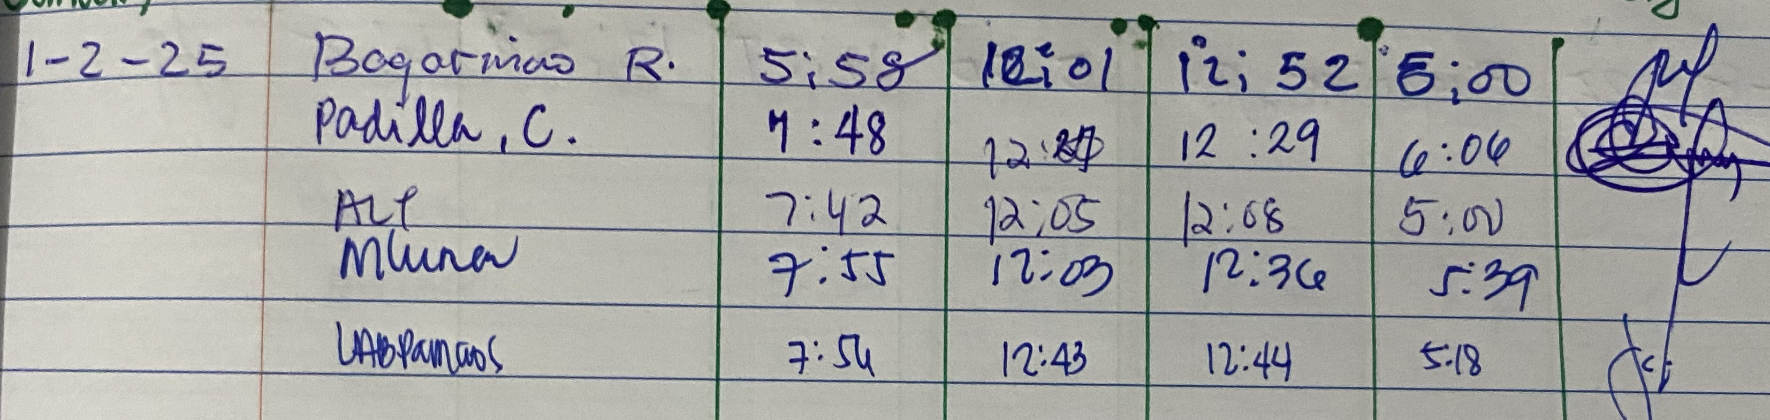 1-2-25 Bogarinao R. 5:58 12:01 12:52 5:00
Padilla, C. 7:48 12:29 6:06
ALP 7:42 12:05 12:08 5:00
Mluna 7:55 12:03 12:36 5:39
LABPamaos 7:54 12:43 12:44 5:18